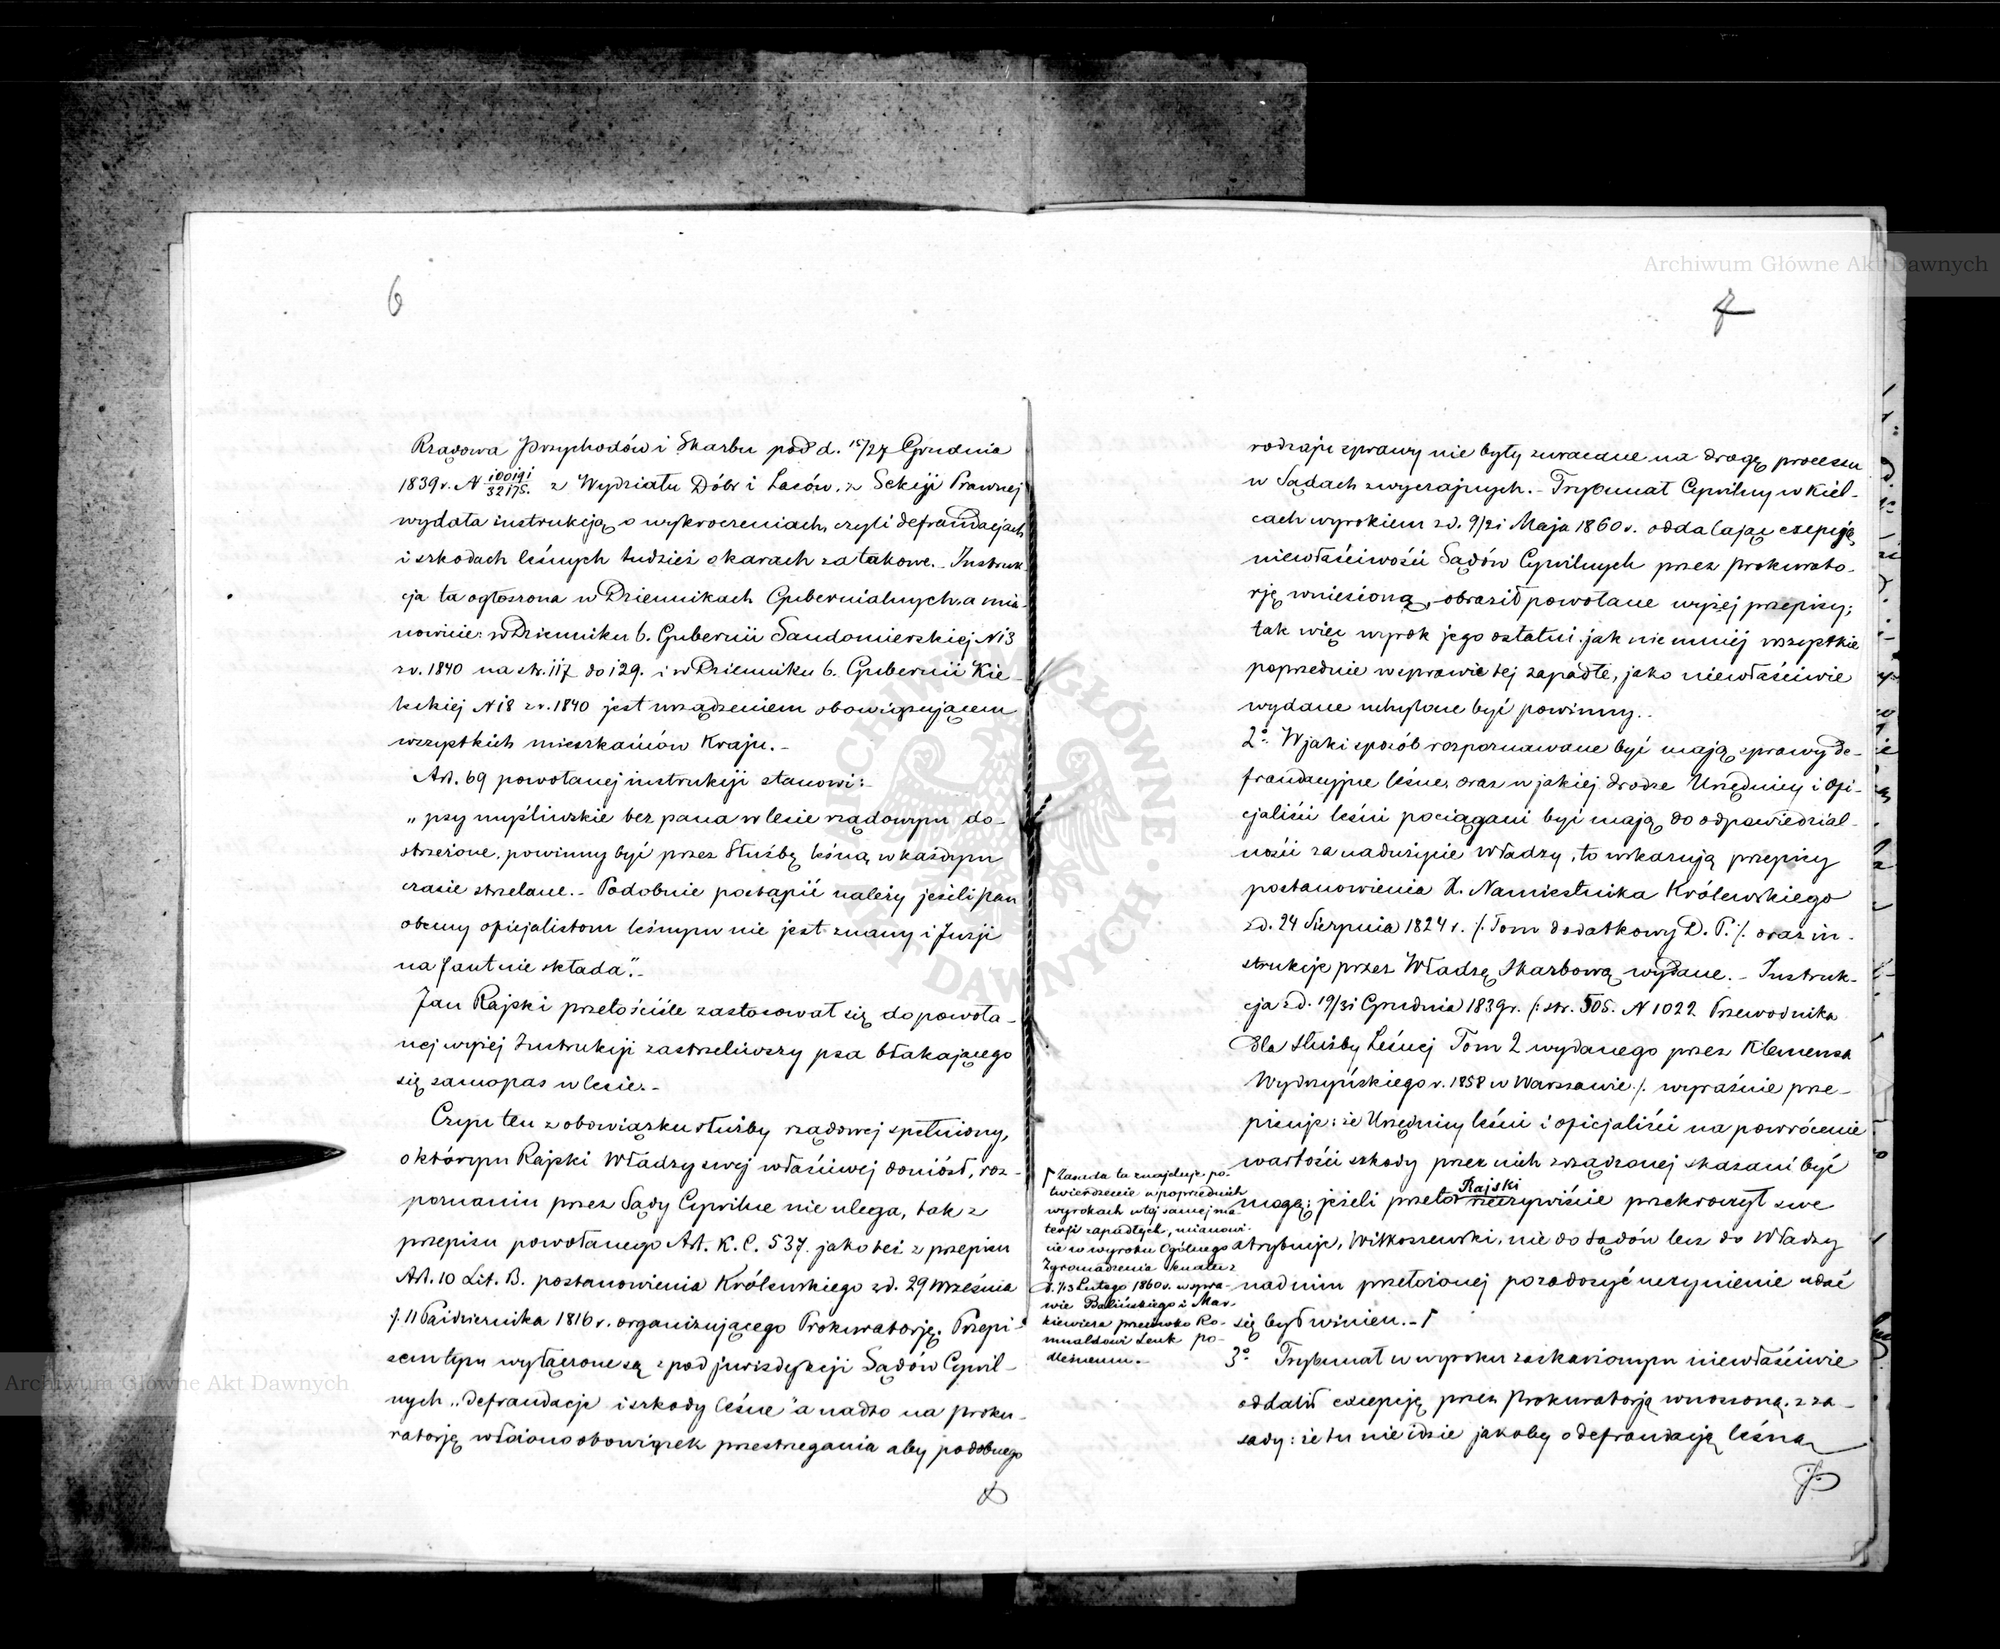 6
Rządowa Przychodów i Skarbu pod d. 15/27 Grudnia
1839 r. N 100191/32175. z Wydziału Dóbr i Lasów, z Sekcji Prawnej
wydała instrukcją o wykroczeniach, czyli defraudacjach
i szkodach leśnych tudzież o karach za takowe. - Instruk-
cja ta ogłoszona w Dziennikach Gubernialnych, a mia-
nowicie: w Dzienniku b. Gubernii Sandomierskiej N 13
z r. 1840 na str. 117 do 129. i w Dzienniku b. Gubernii Kie-
leckiej N 18 z r. 1840 jest urządzeniem obowiązującem
wszystkich mieszkańców Kraju. -
Art. 69 powołanej instrukcji stanowi: -
„psy myśliwskie bez pana w lesie rządowym do-
strzeżone, powinny być przez Służbę leśną w każdym
czasie strzelane. - Podobnie postąpić należy jeżeli pan
obecny oficjalistom leśnym nie jest znany i fuzji
na fant nie składa". -
Jan Rajski przeto ściśle zastosował się do powoła-
nej wyżej Instrukcji zastrzeliwszy psa błakającego
się samopas w lesie. -
Czyn ten z obowiązku służby rządowej spełniony,
o którym Rajski Władzy swej właściwej doniósł, roz-
poznaniu przez Sądy Cywilne nie ulega, tak z
przepisu powołanego Art. K. C. 537. jako też z przepisu
Art. 10 Lit. B. postanowienia Królewskiego z d. 29 Września
/. 11 Października 1816 r. organizującego Prokuratorję. Przepi-
sem tym wyłączone są z pod juryzdykcji Sądów Cywil-
nych „defraudacje i szkody leśne" a nadto na proku-
ratorję włożono obowiązek przestrzegania aby podobnego
7
rodzaju sprawy nie były zwracane na drogę procesu
w Sądach zwyczajnych. - Trybunał Cywilny w Kiel-
cach wyrokiem z d. 9/21 Maja 1860 r. oddalając excepcję
niewłaściwości Sądów Cywilnych przez Prokurato-
rję wniesioną, obraził powołane wyżej przepisy;
tak więc wyrok jego ostatni jak nie mniej wszystkie
poprzednie w sprawie tej zapadłe, jako niewłaściwie
wydane uchylone być powinny. -
2°. W jaki sposób rozpoznawane być mają sprawy de-
fraudacyjne leśne, oraz w jakiej drodze Urzędnicy i ofi-
cjaliści leśni pociągani być mają do odpowiedzial-
ności za nadużycie Władzy, to wskazują przepisy
postanowienia X. Namiestnika Królewskiego
z d. 24 Sierpnia 1824 r. /: Tom dodatkowy D. P. :/ oraz in-
strukcje przez Władzę Skarbową wydane. - Instruk-
cja z d. 19/31 Grudnia 1839 r. /: str. 505. N 1022 Przewodnika
dla Służby Leśnej Tom 2 wydanego przez Klemensa
Wydrzyńskiego r. 1858 w Warszawie :/. wyraźnie prze-
pisuje: że Urzędnicy leśni i oficjaliści na powrócenie
wartości szkody przez nich zrządzonej skazani być
mogą; jeżeli przeto Rajski rzeczywiście przekroczył swe
atrybucje, Witkoszewski, nie do sądów lecz do Władzy
nad nim przełożonej po zadosyć uczynienie udać
się był winien. - Γ
Γ Zasada ta znajduje po-
twierdzenie w poprzednich
wyrokach w tej samej ma-
terji zapadłych, mianowi-
cie w wyroku Ogólnego
Zgromadzenia Senatu z
d. 1/13 Lutego 1860 r. w spra-
wie Balińskiego i Mar-
kiewicza przeciwko Ro-
mualdowi Lenk po-
dleśnemu. -
3°. Trybunał w wyroku zaskarżonym niewłaściwie
oddalił excepcję przez Prokuratorję wnoszoną, z za-
sady: że tu nie idzie jakoby o defraudacją leśną
Archiwum Główne Akt Dawnych
ARCHIWUM GŁÓWNE AKT DAWNYCH
Archiwum Główne Akt Dawnych